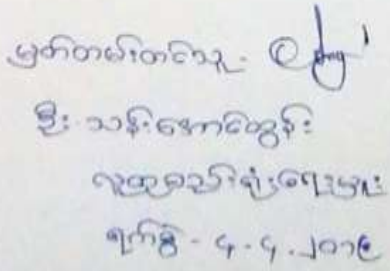 မှတ်တမ်းတင်သူ -
ဦးသန်းအောင်ထွန်း
လူထုစည်းရုံးရေးမှူး
ရက်စွဲ - ၄.၄.၂၀၁၉